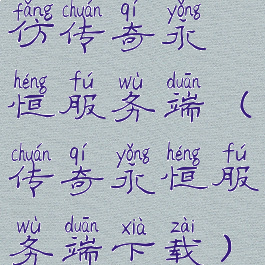 fǎng chuán qí yǒng
仿传奇永
héng fú wù duān
恒服务端（
chuán qí yǒng héng fú
传奇永恒服
wù duān xià zài
务端下载）